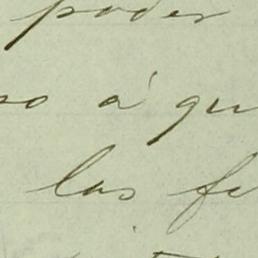 poder
so á qu
las fe